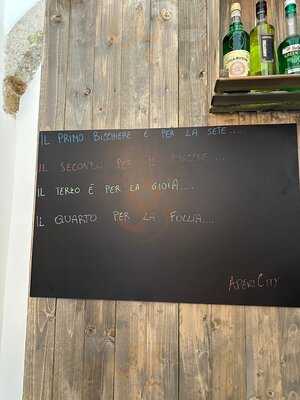 IL PRIMO BICCHIERE È PER LA SETE....
IL SECONDO PER IL PIACERE ...
IL TERZO È PER LA GIOIA....
IL QUARTO PER LA FOLLIA...
APERICITY